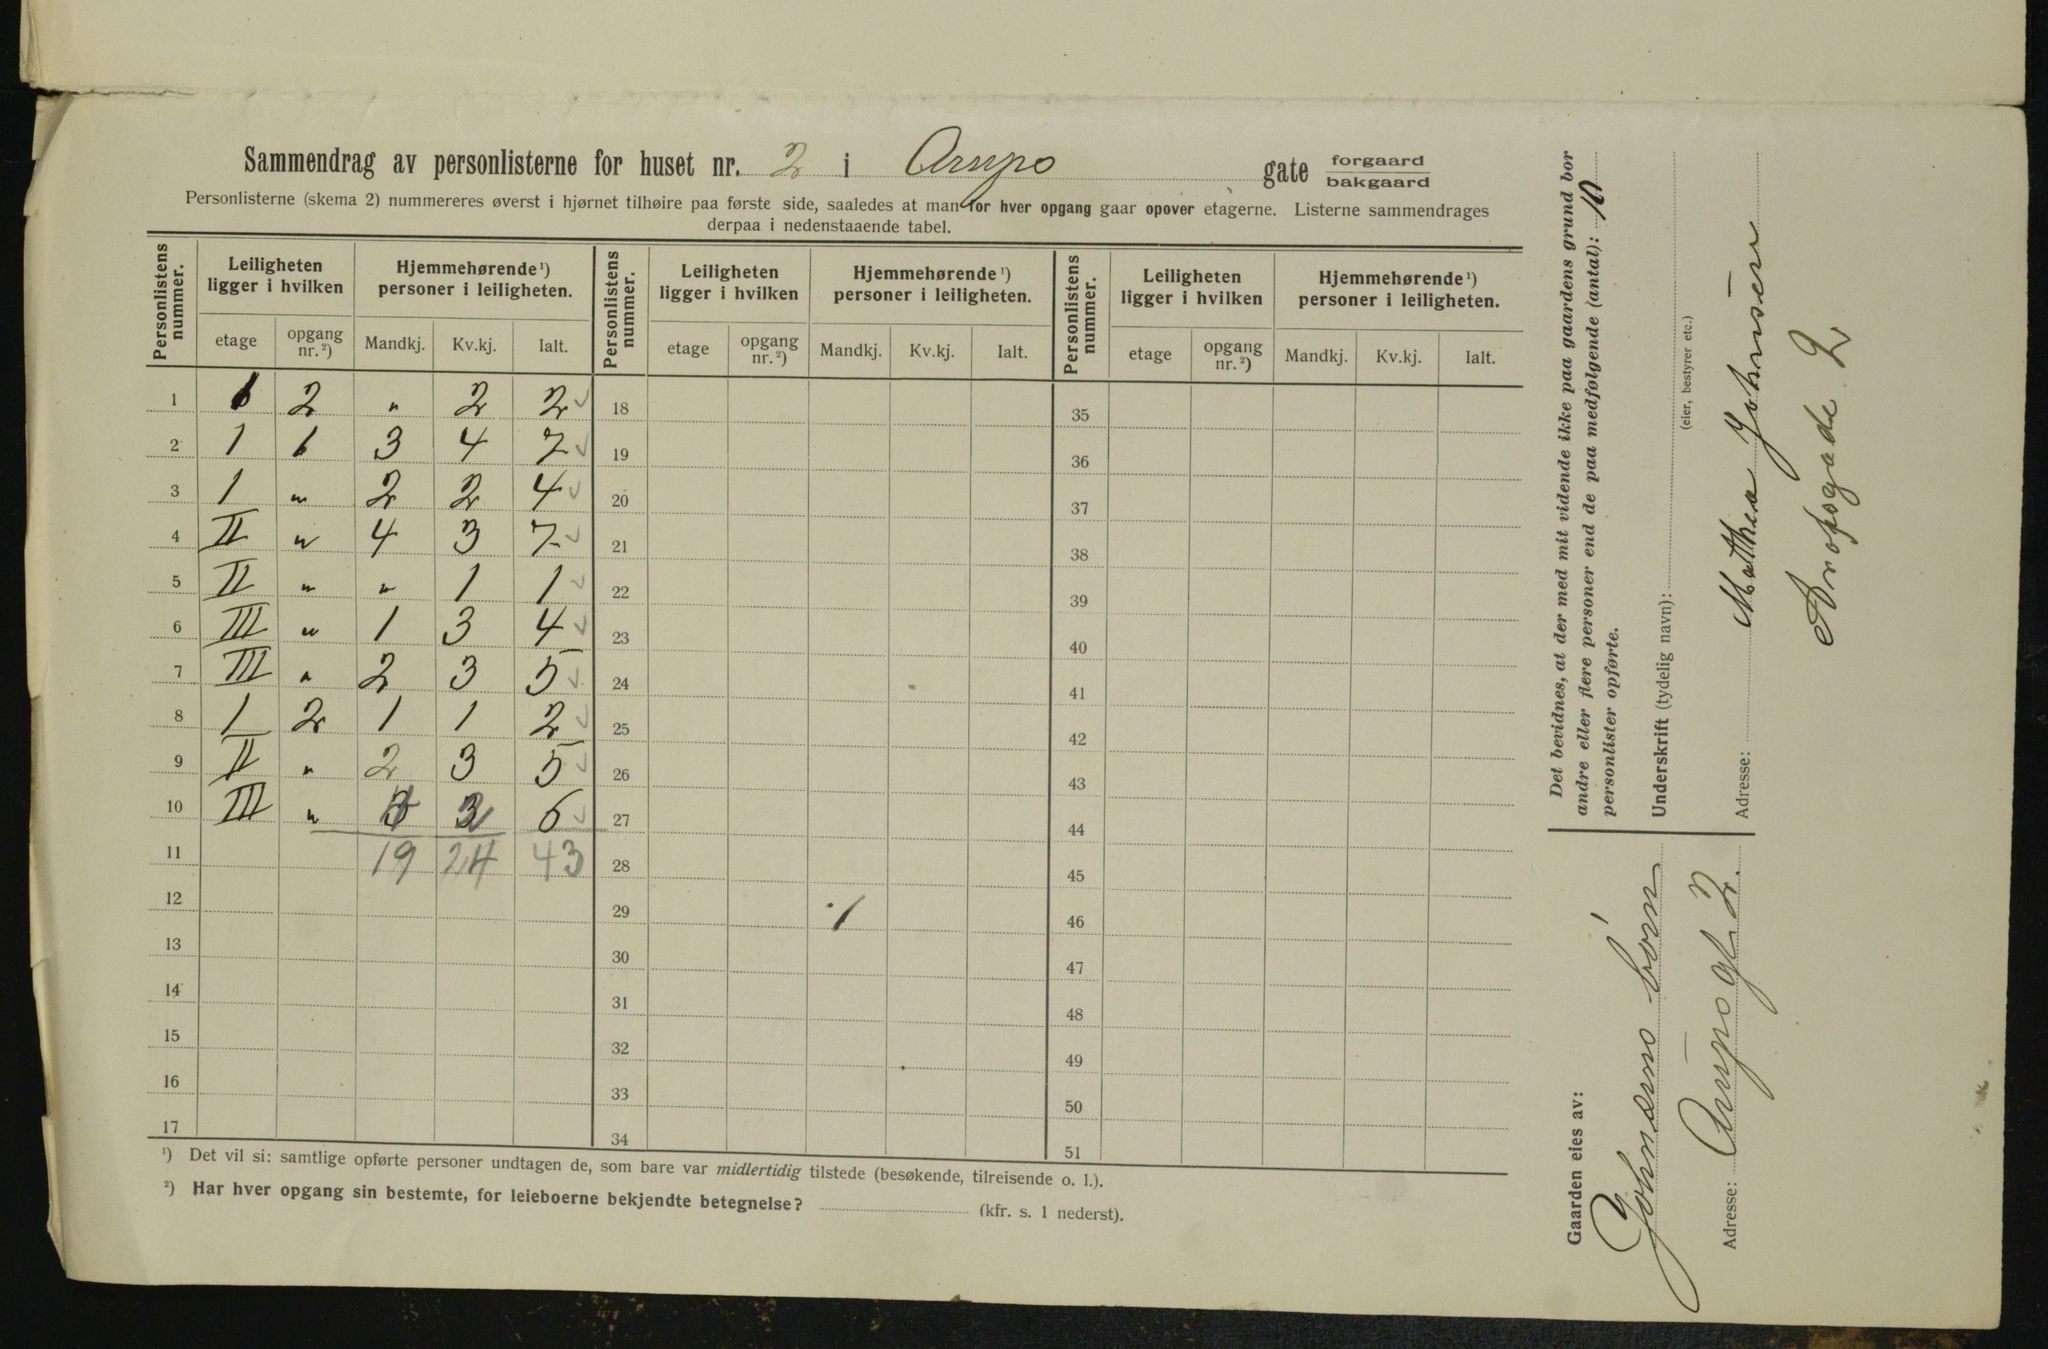 Sammendrag av personlisterne for huset nr. 2 i Arups gate forgaard bakgaard
Personlisterne (skema 2) nummereres øverst i hjørnet tilhøire paa første side, saaledes at man for hver opgang gaar opover etagerne. Listerne sammendrages
derpaa i nedenstaaende tabel.
Personlistens nummer. Leiligheten ligger i hvilken Hjemmehørende ¹) personer i leiligheten. Personlistens nummer. Leiligheten ligger i hvilken Hjemmehørende ¹) personer i leiligheten. Personlistens nummer. Leiligheten ligger i hvilken Hjemmehørende ¹) personer i leiligheten.
etage opgang nr. ²) Mandkj. Kv.kj. Ialt. etage opgang nr. ²) Mandkj. Kv.kj. Ialt. etage opgang nr. ²) Mandkj. Kv.kj. Ialt.
1 1 2 " 2 2 18 35
2 1 1 3 4 7 19 36
3 1 " 2 2 4 20 37
4 II " 4 3 7 21 38
5 II " " 1 1 22 39
6 III " 1 3 4 23 40
7 III " 2 3 5 24 41
8 1 2 1 1 2 25 42
9 II " 2 3 5 26 43
10 III " 6 27 44
11 19 24 43 28 45
12 29 1 46
13 30 47
14 31 48
15 32 49
16 33 50
17 34 51
¹) Det vil si: samtlige opførte personer undtagen de, som bare var midlertidig tilstede (besøkende, tilreisende o. l.).
²) Har hver opgang sin bestemte, for leieboerne bekjendte betegnelse? (kfr. s. 1 nederst).
Det bevidnes, at der med mit vidende ikke paa gaardens grund bor
andre eller flere personer end de paa medfølgende (antal): 10
personlister opførte.
Underskrift (tydelig navn):
(eier, bestyrer etc.)
Matthea Johnsen
Adresse:
Arupsgade 2
Gaarden eies av:
Johnsens børn
Adresse: Arups gt 2.